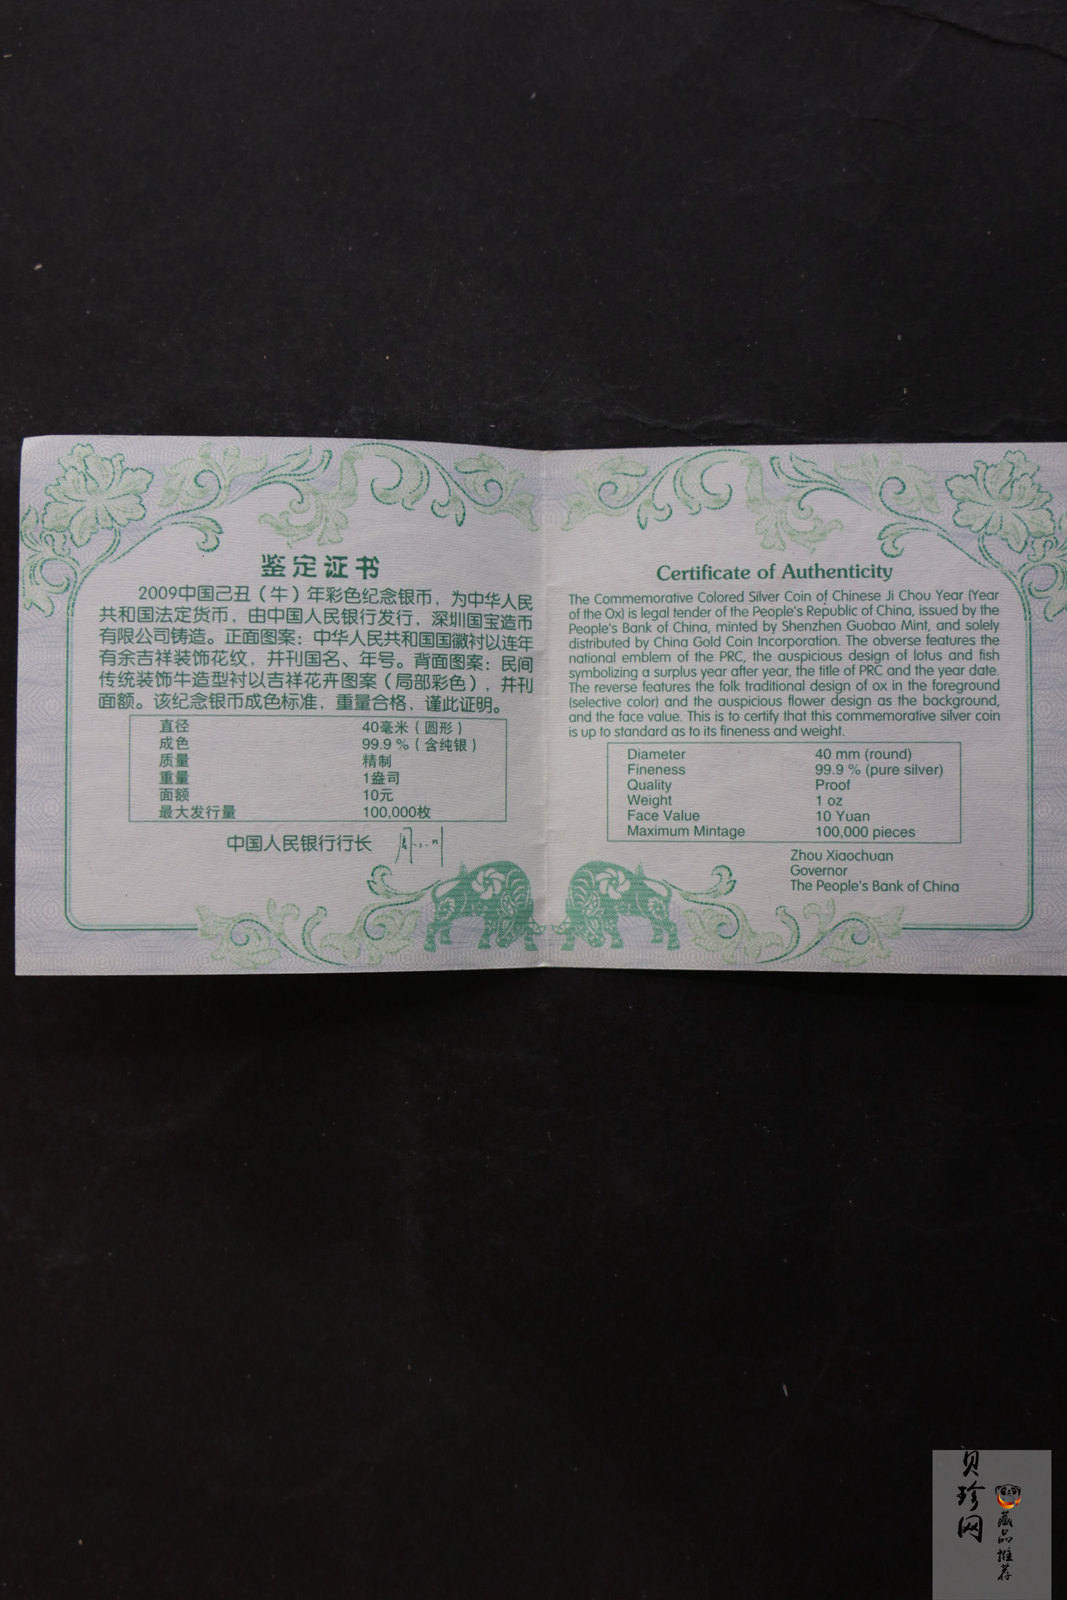 鉴定证书
2009中国己丑（牛）年彩色纪念银币，为中华人民
共和国法定货币，由中国人民银行发行，深圳国宝造币
有限公司铸造。正面图案：中华人民共和国国徽衬以连年
有余吉祥装饰花纹，并刊国名、年号。背面图案：民间
传统装饰牛造型衬以吉祥花卉图案（局部彩色），并刊
面额。该纪念银币成色标准，重量合格，谨此证明。
直径 40毫米（圆形）
成色 99.9％（含纯银）
质量 精制
重量 1盎司
面额 10元
最大发行量 100,000枚
中国人民银行行长
Certificate of Authenticity
The Commemorative Colored Silver Coin of Chinese Ji Chou Year (Year
of the Ox) is legal tender of the People's Republic of China, issued by the
People's Bank of China, minted by Shenzhen Guobao Mint, and solely
distributed by China Gold Coin Incorporation. The obverse features the
national emblem of the PRC, the auspicious design of lotus and fish
symbolizing a surplus year after year, the title of PRC and the year date.
The reverse features the folk traditional design of ox in the foreground
(selective color) and the auspicious flower design as the background,
and the face value. This is to certify that this commemorative silver coin
is up to standard as to its fineness and weight.
Diameter 40 mm (round)
Fineness 99.9 % (pure silver)
Quality Proof
Weight 1 oz
Face Value 10 Yuan
Maximum Mintage 100,000 pieces
Zhou Xiaochuan
Governor
The People's Bank of China
贝珍网
藏品推荐